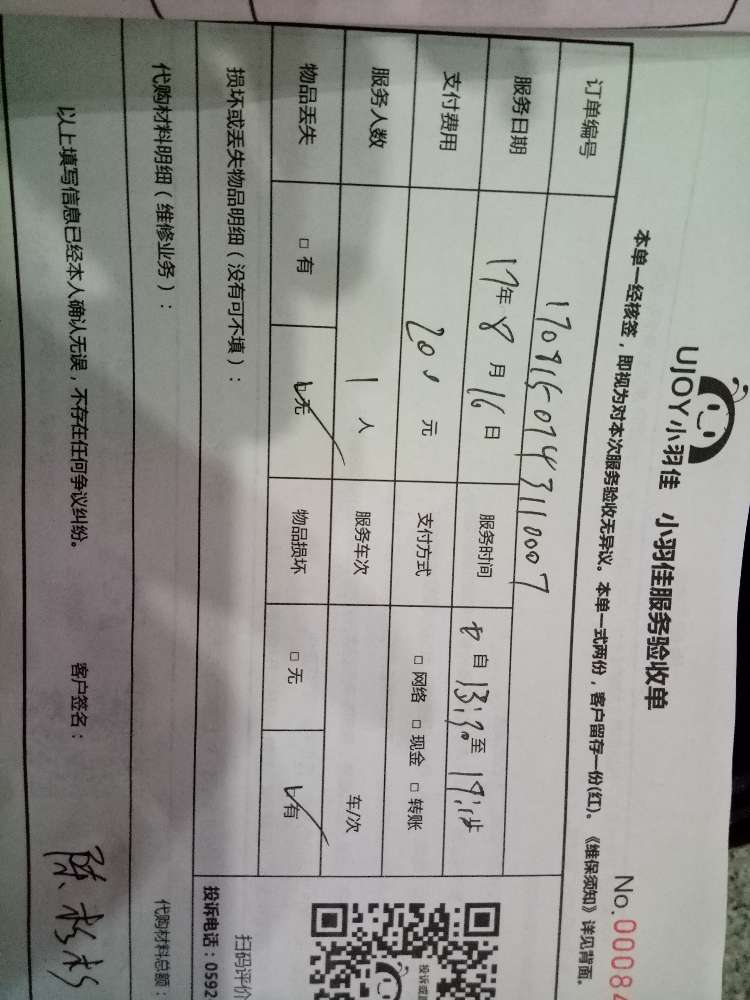 UJOY小羽佳 小羽佳服务验收单
No.00084
本单一经核签，即视为对本次服务验收无异议。本单一式两份，客户留存一份(红)。《维保须知》详见背面。
订单编号 1708150743110007
服务日期 17年8月16日 服务时间 自13:30至
支付费用 200元 支付方式 □网络 □现金 □转账
服务人数 1人 服务车次 车/次
物品丢失 □有 □无 物品损坏 □无 □有
损坏或丢失物品明细（没有可不填）：
扫码评价
投诉电话：0592
代购材料明细（维修业务）： 代购材料总额：
以上填写信息已经本人确认无误，不存在任何争议纠纷。 客户签名：